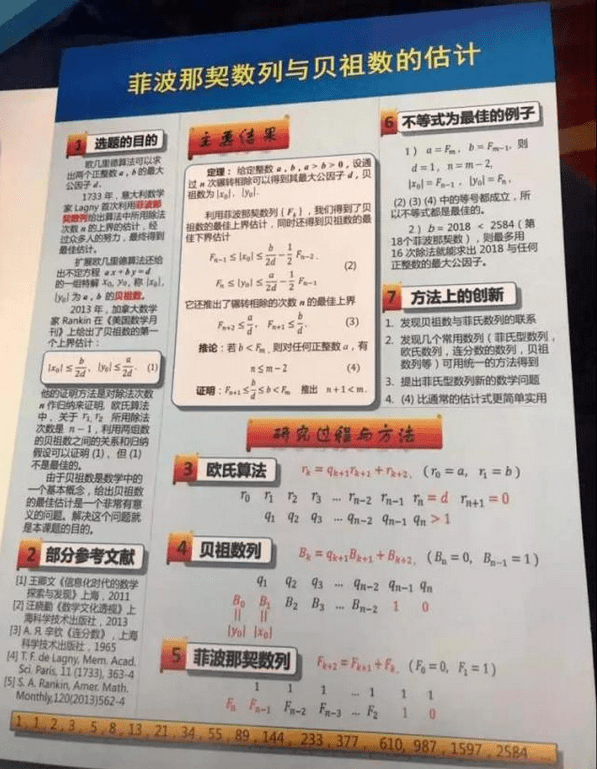 菲波那契数列与贝祖数的估计
1 选题的目的
欧几里德算法可以求
出两个正整数 a, b 的最大
公因子 d.
1733 年，意大利数学
家 Lagny 首次利用菲波那
契数列给出算法中所用除法
次数 n 的上界的估计，经
过众多人的努力，最终得到
最佳估计。
扩展欧几里德算法还给
出不定方程 ax+by=d
的一组特解 x₀, y₀, 称 |x₀|,
|y₀| 为 a, b 的贝祖数。
2013 年，加拿大数学
家 Rankin 在《美国数学月
刊》上给出了贝祖数的第一
个上界估计：
|x₀| ≤ b/2d, |y₀| ≤ a/2d. (1)
他的证明方法是对除法次数
n 作归纳来证明, 欧氏算法
中，关于 r₁, r₂ 所用除法
次数是 n − 1，利用两组数
的贝祖数之间的关系和归纳
假设可以证明 (1)、但 (1)
不是最佳的。
由于贝祖数是数学中的
一个基本概念，给出贝祖数
的最佳估计是一个非常有意
义的问题。解决这个问题就
是本课题的目的。
2 部分参考文献
[1] 王卿文《信息化时代的数学
探索与发现》上海，2011
[2] 汪晓勤《数学文化透视》上
海科学技术出版社，2013
[3] А. Я. 辛钦《连分数》, 上海
科学技术出版社，1965
[4] T. F. de Lagny, Mem. Acad.
Sci. Paris, 11 (1733), 363-4
[5] S. A. Rankin, Amer. Math.
Monthly,120(2013)562-4
主要结果
定理：给定整数 a, b, a > b > 0, 设通
过 n 次辗转相除可以得到其最大公因子 d, 贝
祖数为 |x₀|, |y₀|.
利用菲波那契数列 {Fₖ}，我们得到了贝
祖数的最佳上界估计，同时还得到贝祖数的最
佳下界估计
Fₙ₋₁ ≤ |x₀| ≤ b/2d − 1/2 Fₙ₋₂.
(2)
Fₙ ≤ |y₀| ≤ a/2d − 1/2 Fₙ₋₁
它还推出了辗转相除的次数 n 的最佳上界
Fₙ₊₂ ≤ a/d, Fₙ₊₁ ≤ b/d. (3)
推论：若 b < Fₘ, 则对任何正整数 a, 有
n ≤ m − 2 (4)
证明：Fₙ₊₁ ≤ b/d ≤ b < Fₘ 推出 n + 1 < m.
6 不等式为最佳的例子
1）a = Fₘ, b = Fₘ₋₁, 则
d = 1, n = m − 2,
|x₀| = Fₙ₋₁, |y₀| = Fₙ,
(2) (3) (4) 中的等号都成立，所
以不等式都是最佳的。
2）b = 2018 < 2584（第
18个菲波那契数），则最多用
16 次除法就能求出 2018 与任何
正整数的最大公因子。
7 方法上的创新
1. 发现贝祖数与菲氏数列的联系
2. 发现几个常用数列（菲氏型数列，
欧氏数列，连分数的数列，贝祖
数列等）可用统一的方法得到
3. 提出菲氏型数列新的数学问题
4. (4) 比通常的估计式更简单实用
研究过程与方法
3 欧氏算法 rₖ = qₖ₊₁rₖ₊₁ + rₖ₊₂, (r₀ = a, r₁ = b)
r₀ r₁ r₂ r₃ ... rₙ₋₂ rₙ₋₁ rₙ = d rₙ₊₁ = 0
q₁ q₂ q₃ ... qₙ₋₂ qₙ₋₁ qₙ > 1
4 贝祖数列 Bₖ = qₖ₊₁Bₖ₊₁ + Bₖ₊₂, (Bₙ = 0, Bₙ₋₁ = 1)
q₁ q₂ q₃ ... qₙ₋₂ qₙ₋₁ qₙ
B₀ B₁ B₂ B₃ ... Bₙ₋₂ 1 0
|| ||
|y₀| |x₀|
5 菲波那契数列 Fₖ₊₂ = Fₖ₊₁ + Fₖ, (F₀ = 0, F₁ = 1)
1 1 1 ... 1 1 1
Fₙ Fₙ₋₁ Fₙ₋₂ Fₙ₋₃ ... F₂ 1 0
1, 1, 2, 3, 5, 8, 13, 21, 34, 55, 89, 144, 233, 377, 610, 987, 1597, 2584 ...